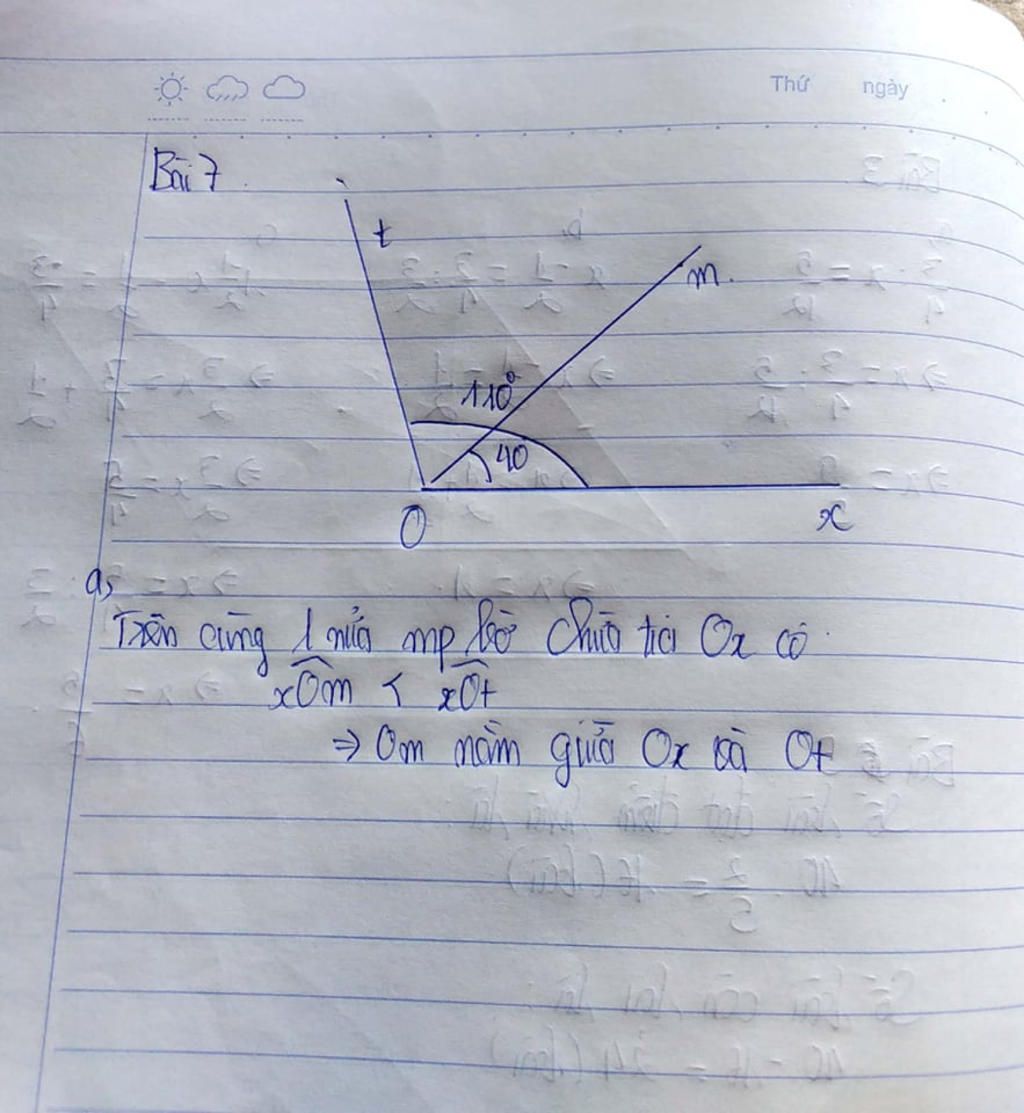 Thứ ngày
Bài 7
t
m.
110°
40
O
x
a,
Trên cùng 1 nửa mp bờ chứa tia Ox có
xOm < xOt
⇒ Om nằm giữa Ox và Ot